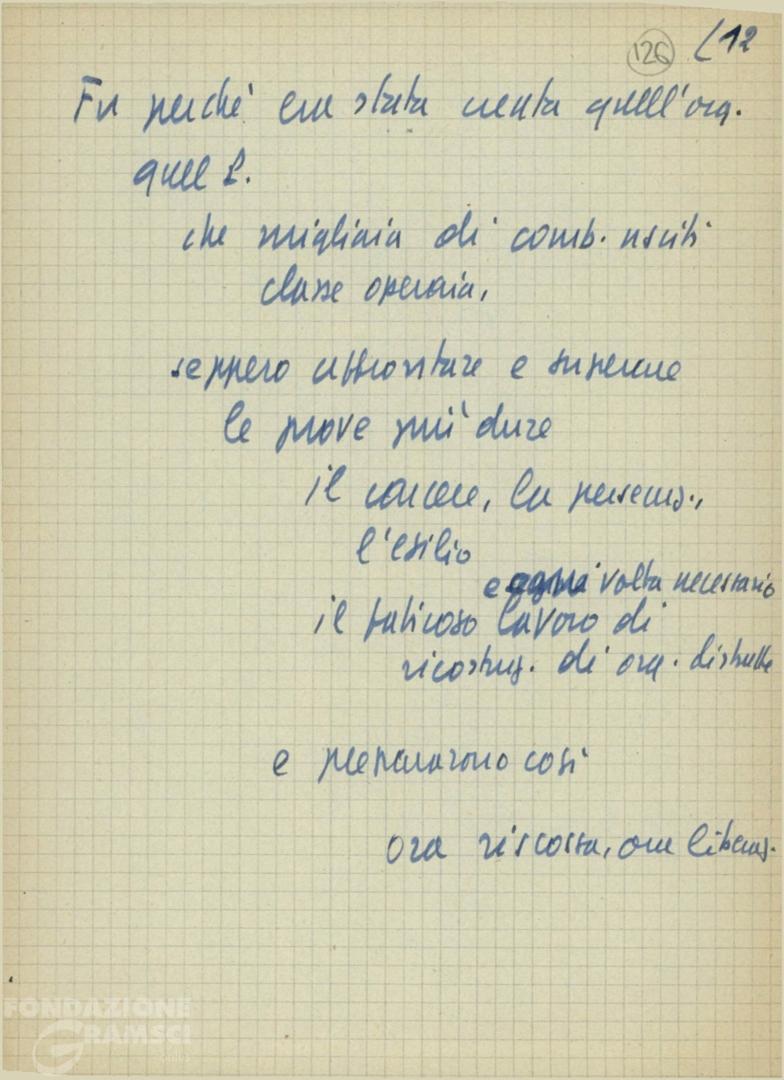 126 (12
Fu perchè era stata creata quell'org.
quel P.
che migliaia di comb. usciti
classe operaia,
seppero affrontare e superare
le prove più dure
il carcere, la persecuz.,
l'esilio
e ogni volta necessario
il faticoso lavoro di
ricostruz. di org. distrutte
e prepararono così
ora riscossa, ora liberaz.
FONDAZIONE
GRAMSCI